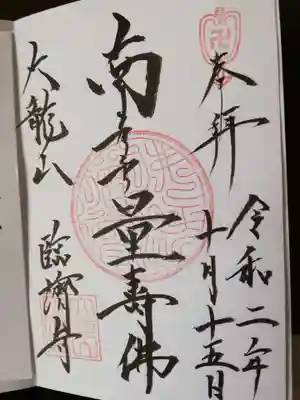 卍
奉拝
令和二年
十月十五日
南無無量壽佛
大龍山 臨濟寺